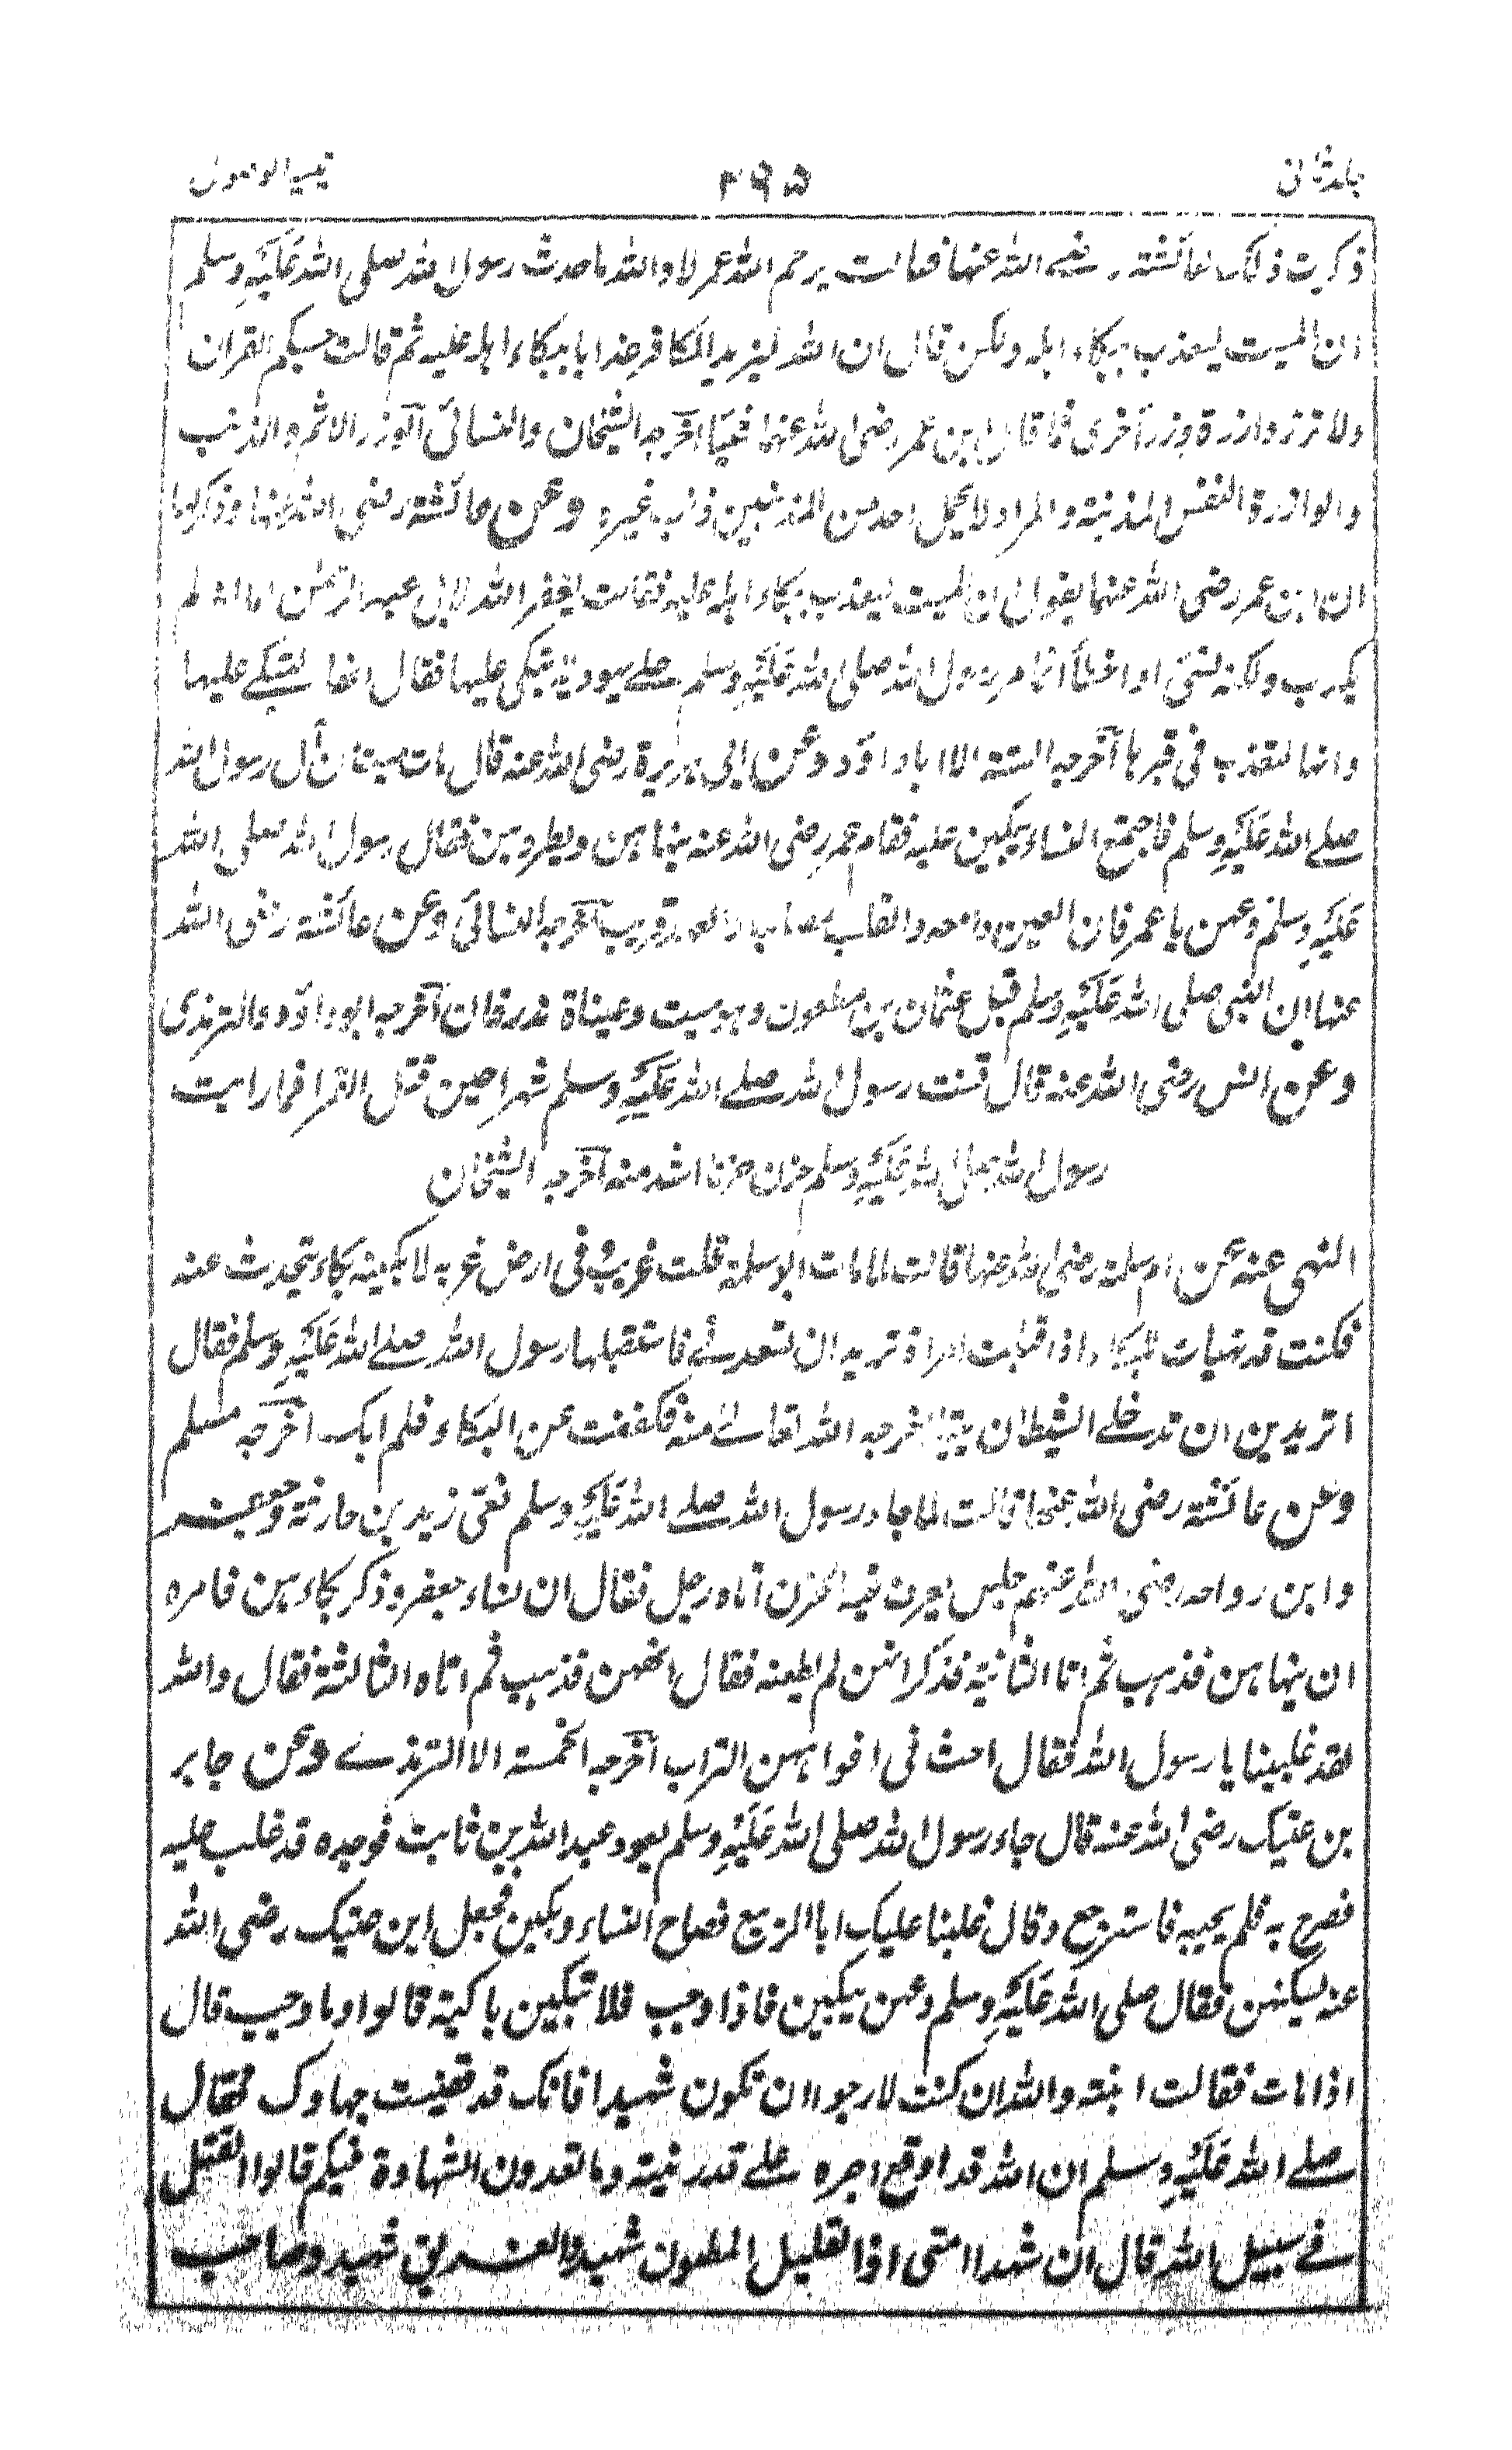 جلد ثانی ۲۹۵ تیسیر الوصول
ذکرت ذلک لعائشة رضے الله عنها فقالت یرحم الله عمر لا والله ما حدث رسول الله صلی الله علیه وسلم
ان المیت لیعذب ببکاء اہلہ ولکن قال ان الله لیزید الکافر عذابا ببکاء اہلہ علیہ ثم قالت حسبکم القران
ولا تزر وازرة وزر أخری فما قال ابن عمر رضی الله عنهما شیئا اخرجہ الشیخان والنسائی الوزر الاثم والذنب
والوازرة النفس المذنبة والمراد لا یحمل احد من المذنبین ذنب غیره وعن عائشة رضی الله عنها وذکر لها
ان ابن عمر رضی الله عنهما یقول ان المیت لیعذب ببکاء اہلہ علیہ فقالت یغفر الله لابی عبد الرحمن اما انه لم
یکذب ولکنه نسی او اخطأ انما مر رسول الله صلی الله علیه وسلم علے یهودیة یبکی علیها فقال انها لتبکے علیها
وانها لتعذب فی قبرها اخرجہ الستة الا ابا داؤد وعن ابی ہریرة رضی الله عنه قال مات میت من أل رسول الله
صلے الله علیه وسلم فاجتمع النساء یبکین علیہ فقام عمر رضی الله عنه ینهاہن ویطردہن فقال رسول الله صلی الله
علیه وسلم دعهن یا عمر فان العین دامعة والقلب مصاب والعهد قریب اخرجہ النسائی وعن عائشة رضی الله
عنها ان النبی صلی الله علیه وسلم قبل عثمان بن مظعون وہو میت وعیناہ تذرفان اخرجہ ابو داؤد والترمذی
وعن انس رضی الله عنه قال قنت رسول الله صلے الله علیه وسلم شهرا حین قتل القرا فما رایت
رسول الله صلی الله علیه وسلم حزن حزنا اشد منه اخرجہ الشیخان
النهی عنه عن ام سلمة رضی الله عنها قالت لما مات ابو سلمة قلت غریب فی ارض غربہ لابکینه بکاء یتحدث عنه
فکنت قد تهیات للبکاء اذا قبلت امراة ترید ان تسعدنے فاستقبلها رسول الله صلے الله علیه وسلم فقال
اتریدین ان تدخلے الشیطان بیتا اخرجہ الله تعالے منه فکففت عن البکاء فلم ابک اخرجہ مسلم
وعن عائشة رضی الله عنها قالت لما جاء رسول الله صلے الله علیه وسلم نعی زید بن حارثة وجعفر
وابن رواحہ رضی الله عنهم جلس یعرف فیہ الحزن اتاه رجل فقال ان نساء جعفر وذکر بکاءہن فامره
ان ینهاہن فذہب ثم اتا الثانیة فذکر انهن لم یطعنه فقال انههن فذہب ثم اتاه الثالثة فقال والله
لقد غلبننا یا رسول الله فقال احث فی افواہهن التراب اخرجہ الخمسة الا الترمذے وعن جابر
بن عتیک رضی الله عنه قال جاء رسول الله صلی الله علیه وسلم یعود عبد الله بن ثابت فوجده قد غلب علیہ
فصرح بہ فلم یجیبہ فاسترجع وقال غلبنا علیک ابا الربیع فصاح النساء وبکین فجعل ابن عتیک رضی الله
عنه یسکتهن فقال صلی الله علیه وسلم دعهن یبکین فاذا وجب فلا تبکین باکیة قالوا وما وجب قال
اذا مات فقالت ابنتہ والله ان کنت لارجوا ان تکون شهیدا فانک قد قضیت جهازک فقال
صلے الله علیه وسلم ان الله قد اوقع اجره علے قدر نیتہ وما تعدون الشهادة فیکم قالوا القتل
فے سبیل الله قال ان شهدا امتی اذا لقلیل المطعون شهید والغریق شهید وصاحب